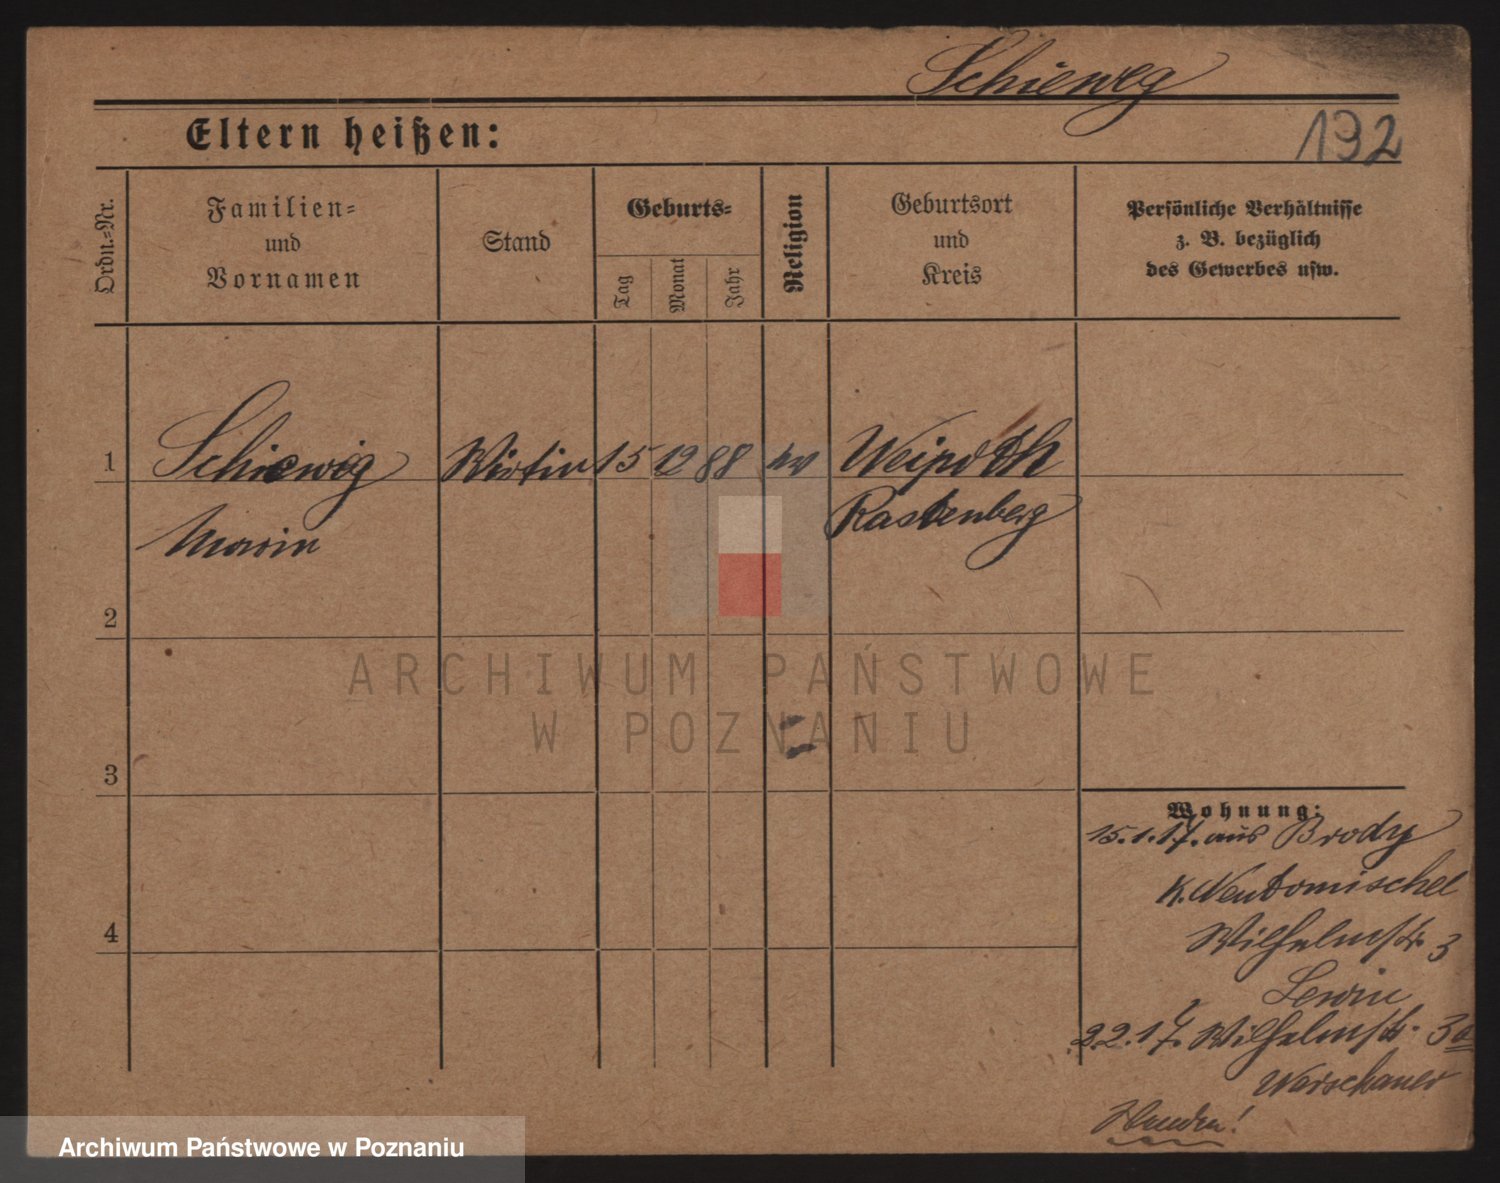 Schieweg
Eltern heißen:
192
Ordn.-Nr.
Familien-
und
Vornamen
Stand
Geburts-
Tag
Monat
Jahr
Religion
Geburtsort
und
Kreis
Persönliche Verhältnisse
z. B. bezüglich
des Gewerbes usw.
1
Schiewig
Wirtin
15
12
88
ev
Rastenberg
2
3
4
Wohnung:
15.1.17. aus Brody
K. Neutomischel
Wilhelmstr. 3
Lewin
2.2.17. Wilhelmstr. 3a
Warschauer
ARCHIWUM PAŃSTWOWE
W POZNANIU
Archiwum Państwowe w Poznaniu